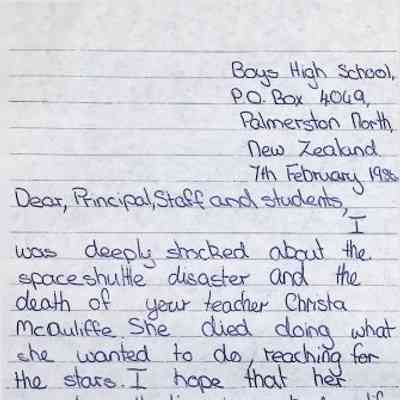 Boys High School,
P.O. Box 4049,
Palmerston North,
New Zealand
7th February 1986
Dear, Principal, Staff and students,
I
was deeply shocked about the
space shuttle disaster and the
death of your teacher Christa
McAuliffe. She died doing what
she wanted to do, reaching for
the stars. I hope that her